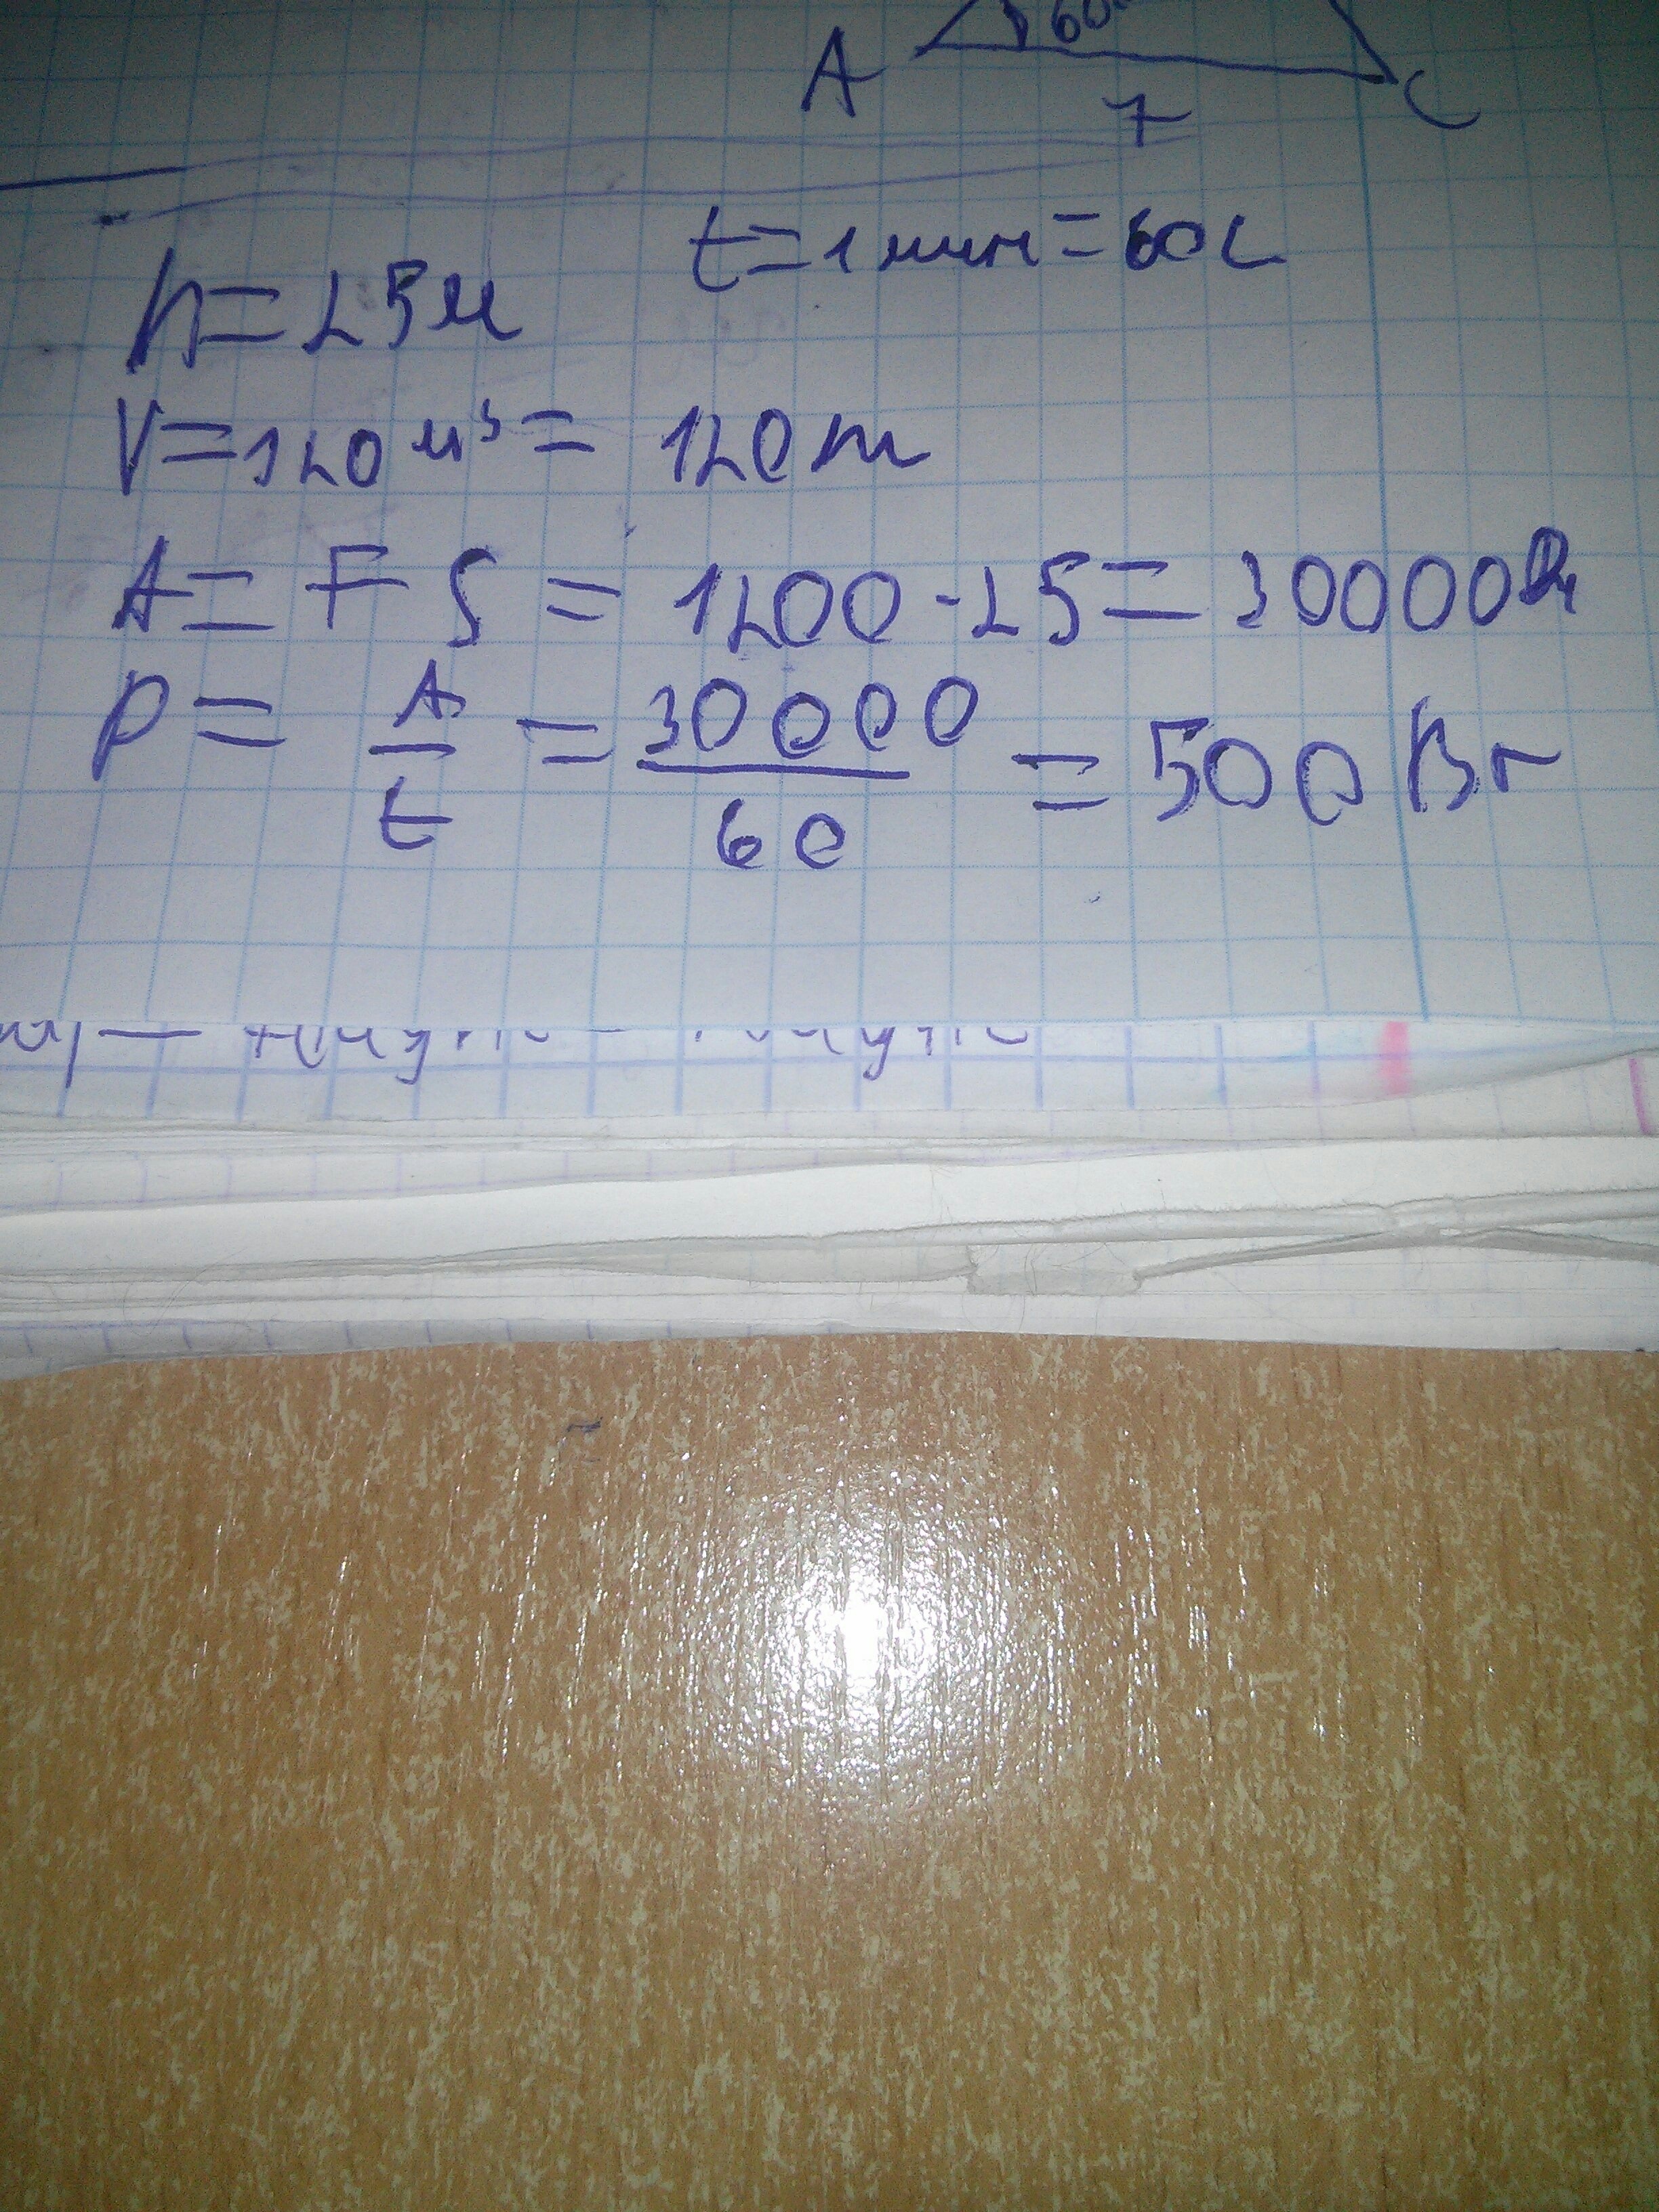 60
A
C
7
t=1мин=60с
h=25м
V=120м³= 120т
A= F S = 1200·25= 30000Дж
P= A/t = 30000/60 = 500 Вт